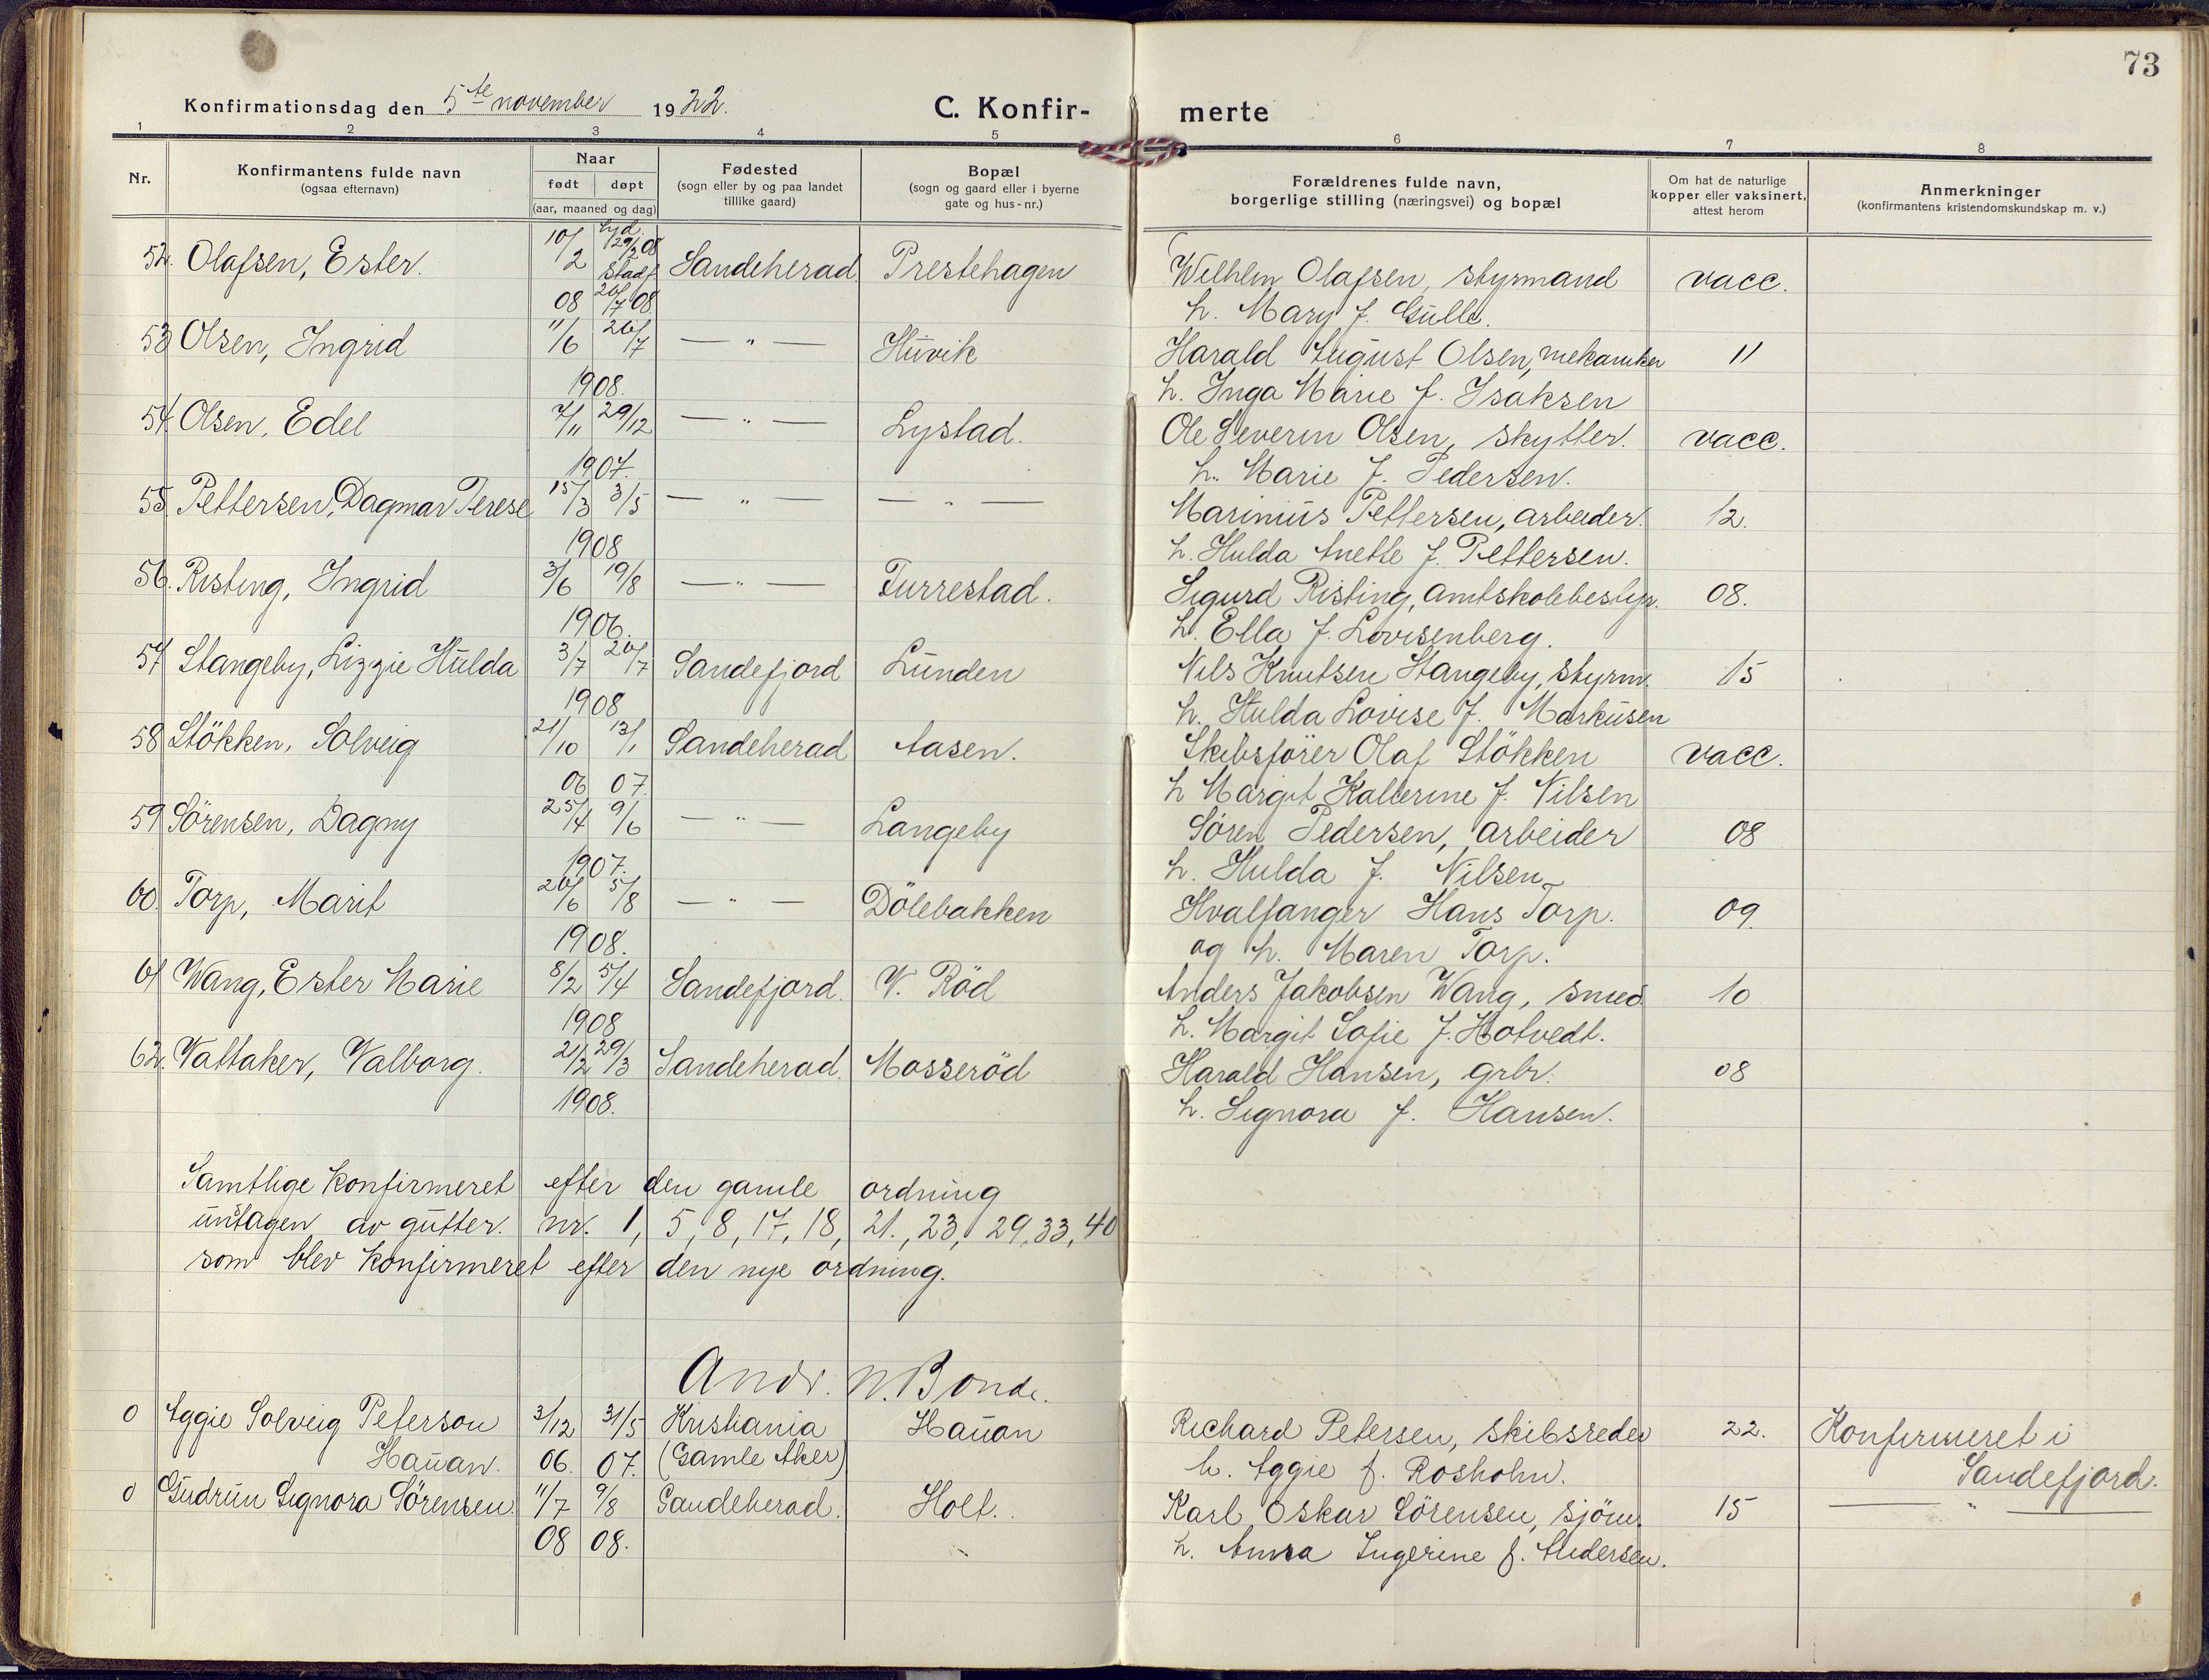 73
Konfirmationsdag den 5te november 1922.
C. Konfir-merte
1 2 3 4 5 6 7 8
Nr.
Konfirmantens fulde navn
(ogsaa efternavn)
Naar
født døpt
(aar, maaned og dag)
Fødested
(sogn eller by og paa landet
tillike gaard)
Bopæl
(sogn og gaard eller i byerne
gate og hus-nr.)
Forældrenes fulde navn,
borgerlige stilling (næringsvei) og bopæl
Om hat de naturlige
kopper eller vaksinert,
attest herom
Anmerkninger
(konfirmantens kristendomskundskap m. v.)
52. Olafsen, Ester. 10/2 08 29/2 08 Stadf. 26/7 08. Sandeherad Prestehagen Wilhlm Olafsen, styrmand vacc.
h. Mary f. Gulli.
53 Olsen, Ingrid 11/6 26/7 — " — Huvik Harald August Olsen, mekaniker 11
1908. h. Inga Marie f. Isaksen
54. Olsen, Edel 7/11 29/12 — " — Lystad. Ole Severin Olsen, skytter. vacc.
1907. h. Marie f. Pedersen.
55. Pettersen, Dagmar Terese 15/3 3/5 — " — — " — Marinius Pettersen, arbeider. 12.
1908 h. Hulda Anette f. Pettersen.
56. Risting, Ingrid 3/6 19/8 — " — Furrestad. Sigurd Risting, amtskolebestyr. 08.
1906. h. Ella f. Lovisenberg.
57 Stangeby, Lizzie Hulda 3/7 26/7 Sandefjord Lunden Nils Knutsen Stangeby, styrm. 15
1908 h. Hulda Lovise f. Markusen
58 Stökken, Solveig 21/10 13/1 Sandeherad Aasen. Skibsfører Olaf Stökken vacc.
06 07. h Margit Katterine f. Nilsen
59 Sörensen, Dagny 25/4 9/6 — " — Langeby Søren Pedersen, arbeider 08
1907. h. Hulda f. Nilsen
60. Torp, Marit 26/6 5/8 — " — Dölebakken Hvalfanger Hans Torp. 09.
1908. og h. Maren Torp.
61 Wang, Ester Marie 8/2 5/4 Sandefjord. V. Röd Anders Jakobsen Wang, smed 10
1908 h. Margit Sofie f. Hotvedt.
62. Vattaker, Valborg. 21/2 29/3 Sandeherad. Mosseröd Harald Hansen, grbr. 08
1908. h. Signora f. Hansen.
Samtlige konfirmeret efter den gamle ordning
untagen av gutter. nr. 1, 5, 8, 17, 18, 21., 23, 29, 33, 40
som blev konfirmeret efter den nye ordning.
Andr. N. Bonde.
0 Aggie Solveig Peterson 3/12 31/5 Kristiania Hauan Richard Petersen, skibsreder 22. Konfirmeret i
Hauan. 06. 07. (Gamle Aker) h. Aggie f. Rosholm. Sandefjord.
0 Gudrun Signora Sörensen 11/7 9/8 Sandeherad. Holt. Karl Oskar Sörensen, sjöm. 15 — " —
08 08. h. Anna Ingerine f. Andersen.